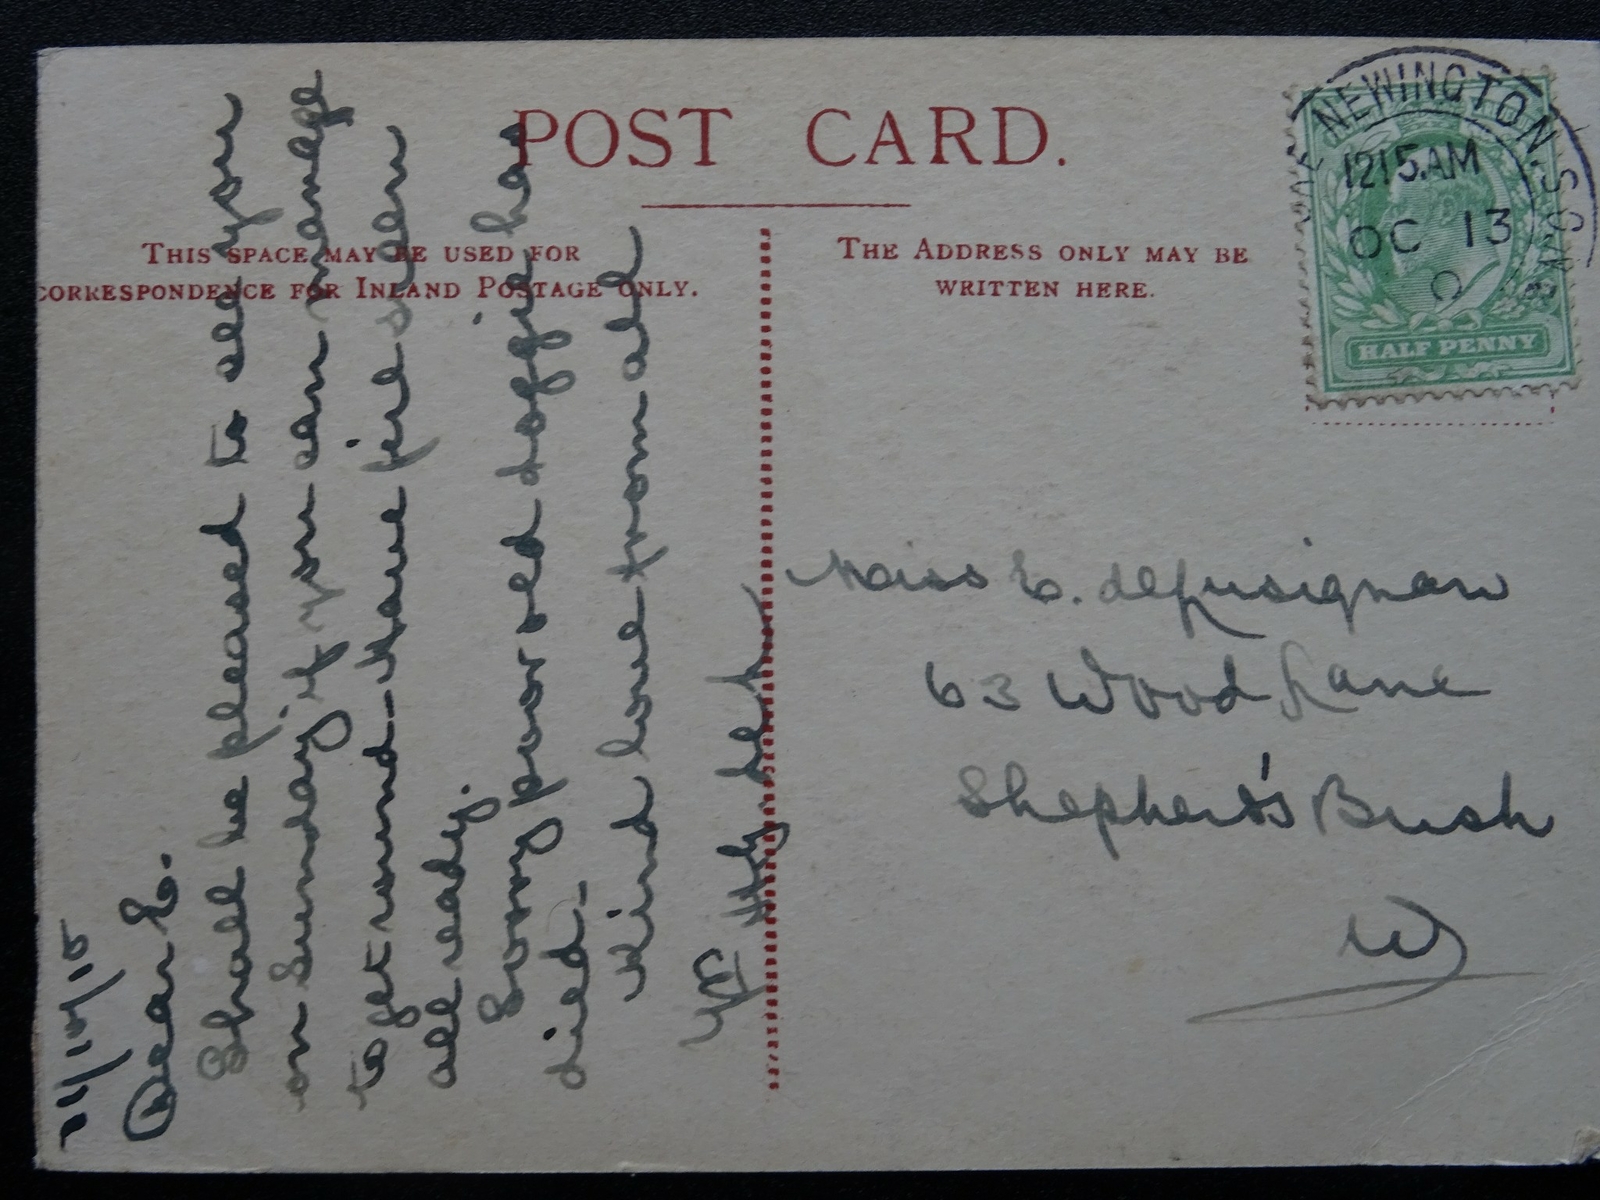 POST CARD.
THIS SPACE MAY BE USED FOR
CORRESPONDENCE FOR INLAND POSTAGE ONLY.
THE ADDRESS ONLY MAY BE
WRITTEN HERE.
NEWINGTON
12 15.AM
OC 13
HALF PENNY
Dear E.
Shall be pleased to see you
on Sunday if you can manage
to get round - have fire seen
all ready.
Sorry poor old doggie has
died -
Kind love from all
Miss E.
63 Wood Lane
Shepherd's Bush
W